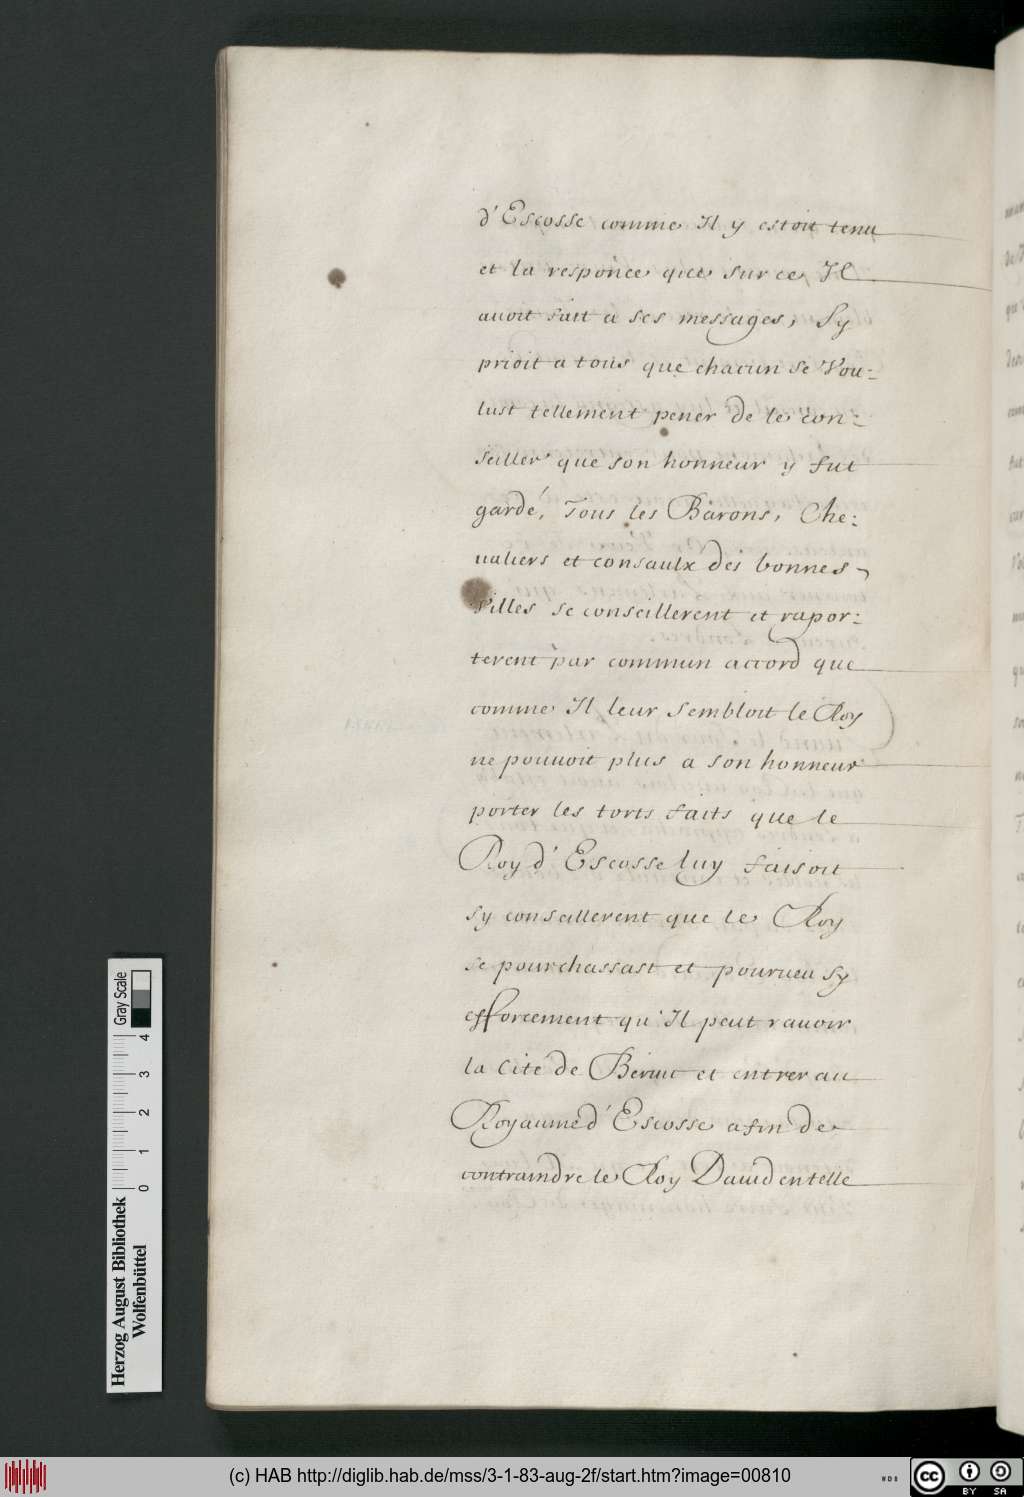 d'Escosse comme Il y estoit tenu
et la responce que sur ce Il
auoit fait a ses messages, Sy
prioit a tous que chacun se Vou-
lust tellement pener de le con-
seiller que son honneur y fut
gardé, Tous les Barons, Che-
ualiers et consaulx des bonnes
Villes se conseillerent et rapor-
terent par commun accord que
comme Il leur sembloit le Roy
ne pouuoit plus a son honneur
porter les torts faits que le
Roy d'Escosse luy faisoit
sy conseillerent que le Roy
se pourchassast et pourueu sy
efforcement qu'Il peut rauoir
la Cité de Beruic et entrer au
Royaume d'Escosse afin de
contraindre le Roy Dauid en telle
Gray Scale
0 1 2 3 4
Herzog August Bibliothek
Wolfenbüttel
(c) HAB http://diglib.hab.de/mss/3-1-83-aug-2f/start.htm?image=00810
WDB
cc BY SA